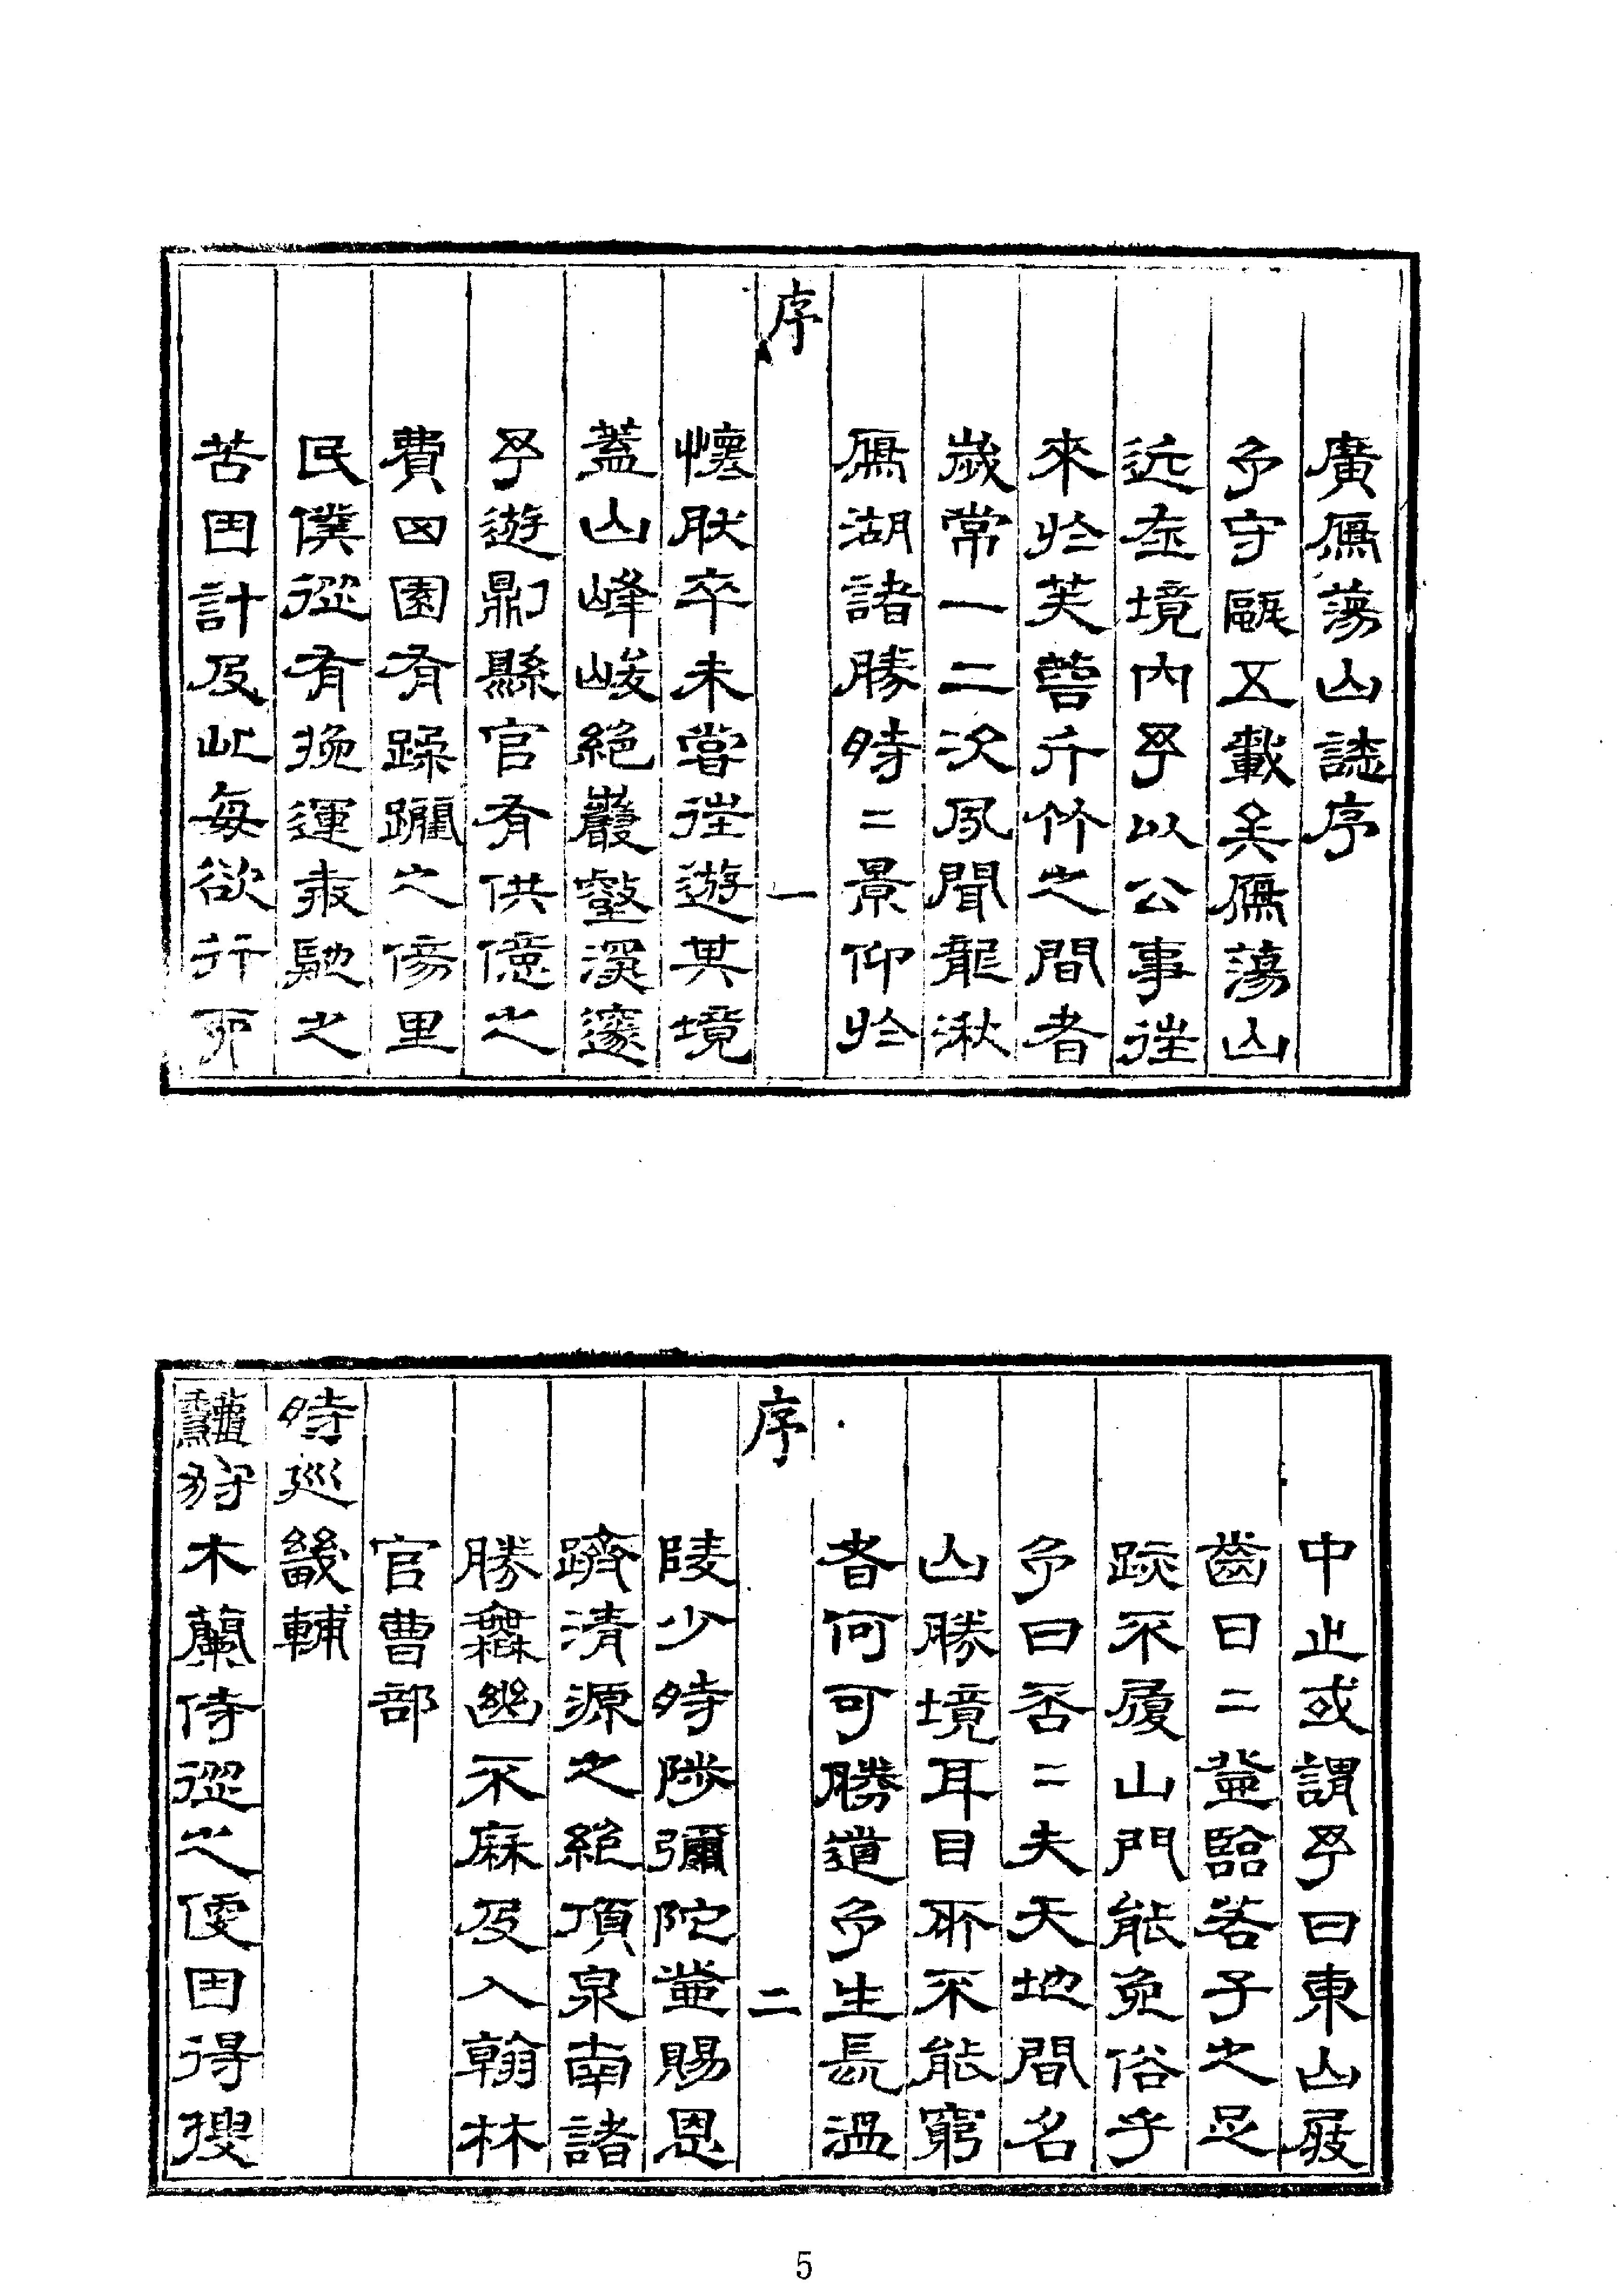 廣鴈蕩山誌序
予守甌五載矣鴈蕩山
近在境內予以公事往
來於芙蓉斤竹之間者
歲常一二次夙聞龍湫
鴈湖諸勝時二景仰於
序
一
懷肰卒未嘗往遊其境
蓋山峰峻絕巖壑深邃
予遊則縣官有供億之
費田園有蹂躝之傷里
民僕從有挽運奔馳之
苦因計及此每欲行而
中止或謂予曰東山屐
齒日二登臨若子之足
跡不履山門能免俗乎
予曰否二夫天地間名
山勝境耳目所不能窮
者何可勝道予生長溫
序
二
陵少時陟彌陀登賜恩
躋清源之絕頂泉南諸
勝無幽不厤及入翰林
官曹部
時巡畿輔
秋狩木蘭侍從之便因得搜